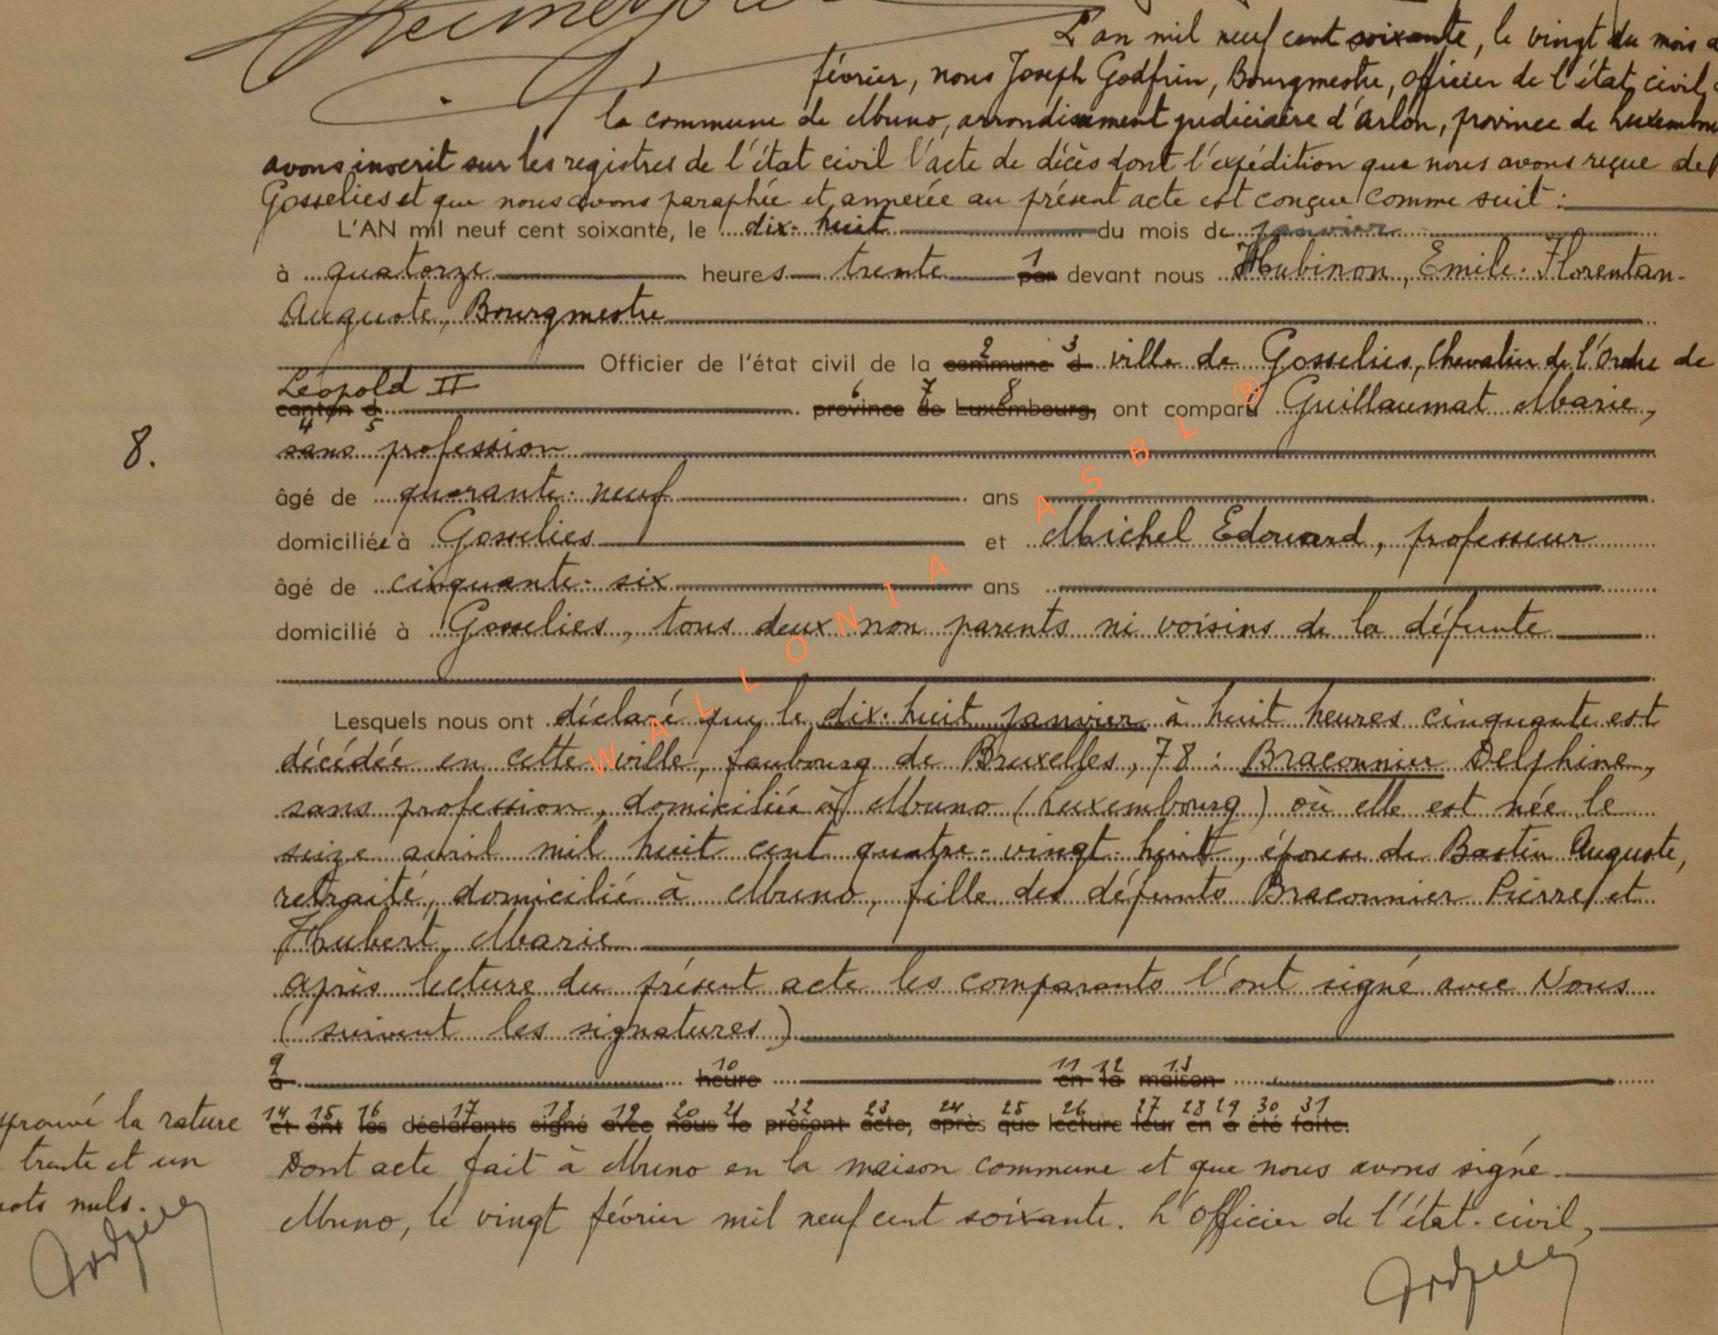 L'an mil neuf cent soixante, le vingt du mois
février, nous Joseph Godfrin, Bourgmestre, officier de l'état civil
la commune de Muno, arrondissement judiciaire d'Arlon, province de Luxembou
avons inscrit sur les registres de l'état civil l'acte de décès dont l'expédition que nous avons reçue de
Gosselies et que nous avons paraphée et annexée au présent acte est conçue comme suit :
L'AN mil neuf cent soixante, le dix-huit du mois de janvier
à quatorze heures trente 1 par devant nous Hubinon, Emile-Florentan-
Auguste, Bourgmestre
Officier de l'état civil de la 2 commune 3 d ville de Gosselies, Chevalier de l'Ordre de
Léopold II
canton d 6 province 7 de 8 Luxembourg, ont comparu Guillaumat Marie,
4 5
8. sans profession
âgé de quarante-neuf ans
domiciliée à Gosselies et Michel Edouard, professeur
âgé de cinquante-six ans
domicilié à Gosselies, tous deux non parents ni voisins de la défunte
Lesquels nous ont déclaré que le dix-huit janvier à huit heures cinquante est
décédée en cette ville, faubourg de Bruxelles, 78 : Braconnier Delphine,
sans profession, domiciliée à Muno (Luxembourg) où elle est née le
seize avril mil huit cent quatre-vingt-huit, épouse de Bastin Auguste,
retraité, domicilié à Muno, fille des défunts Braconnier Pierre et
Hubert Marie
après lecture du présent acte les comparants l'ont signé avec Nous
(suivent les signatures)
9 10 11 12 13
à heure en la maison
14 15 16 17 18 19 20 21 22 23 24 25 26 27 28 29 30 31
prouvé la rature et ont les déclarants signé avec nous le présent acte, après que lecture leur en a été faite.
trente et un Dont acte fait à Muno en la maison commune et que nous avons signé.
mots nuls. Muno, le vingt février mil neuf cent soixante. L'Officier de l'état-civil,
WALLONIA ASBL ®